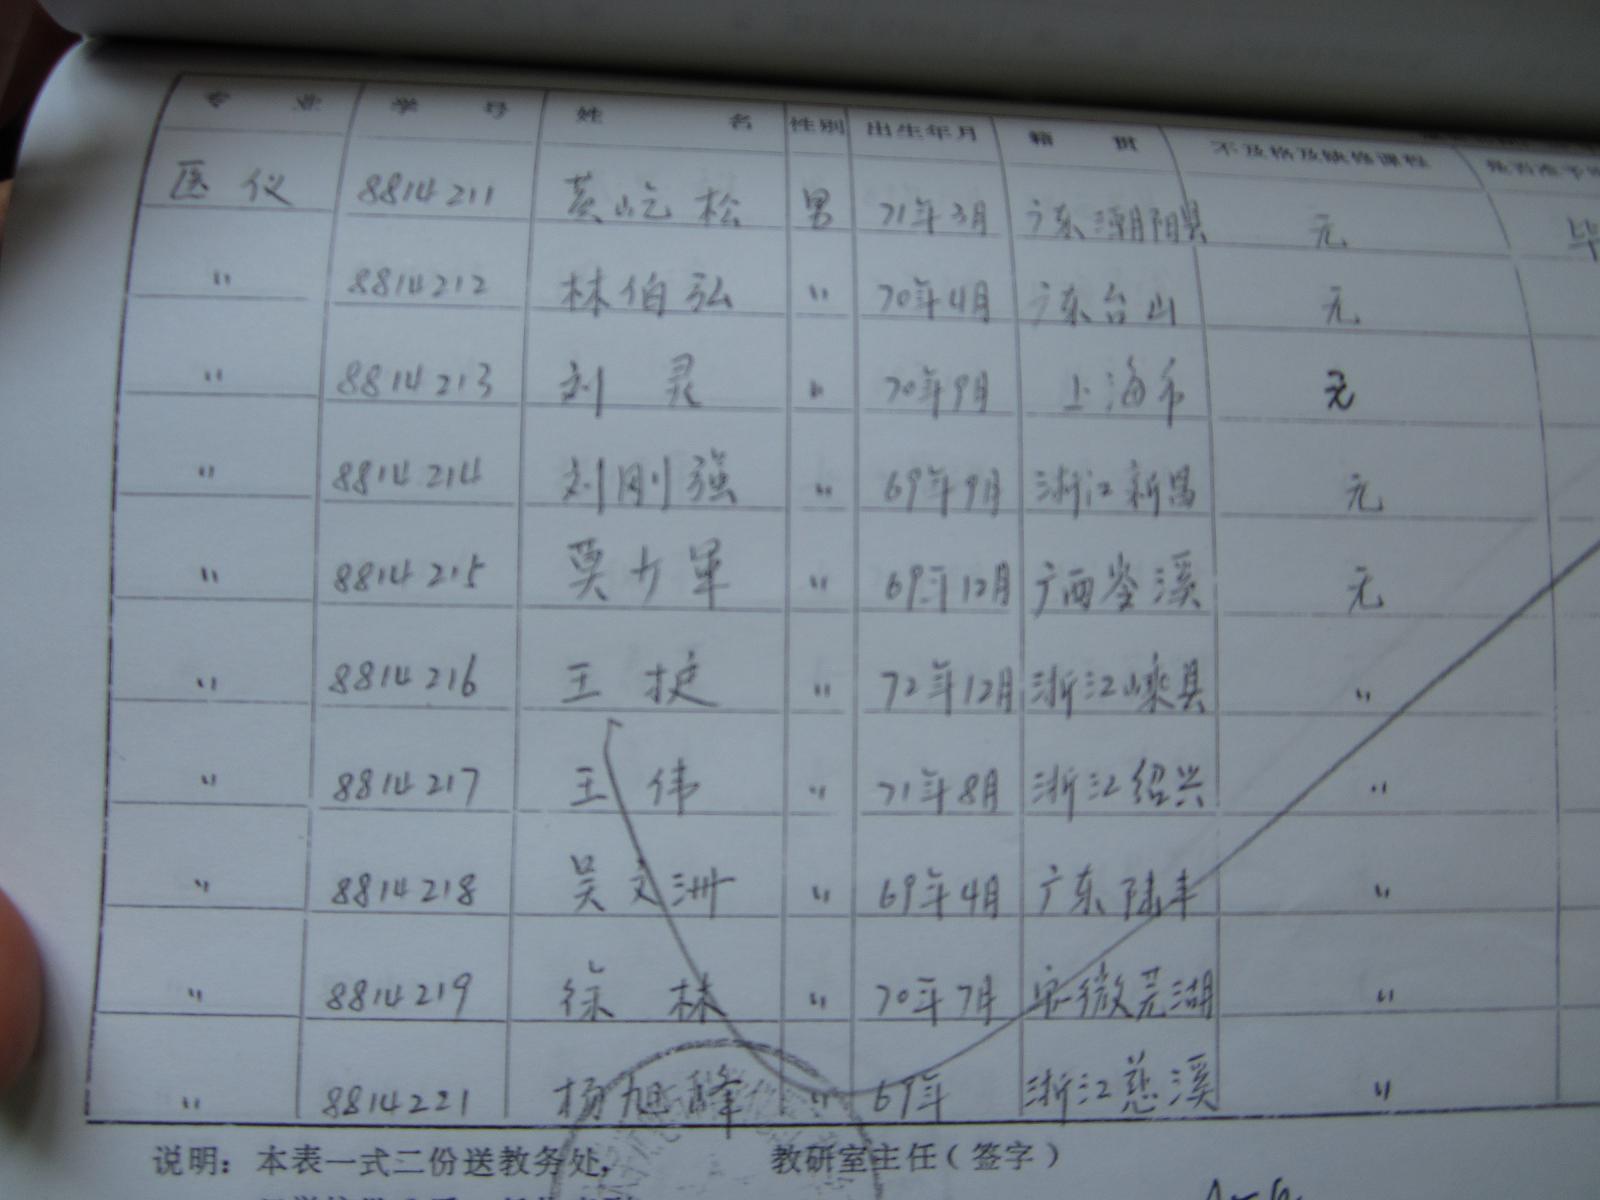 专 业 学 号 姓 名 性别 出生年月 籍 贯 不及格及缺修课程 是否准予
医仪 8814211 黄屹松 男 71年3月 广东潮阳县 无 毕
〃 8814212 林伯弘 〃 70年4月 广东台山 无
〃 8814213 刘 灵 〃 70年9月 上海市 无
〃 8814214 刘刚强 〃 69年9月 浙江新昌 无
〃 8814215 莫少军 〃 69年12月 广西岑溪 无
〃 8814216 王 〃 72年12月 浙江嵊县 〃
〃 8814217 王 伟 〃 71年8月 浙江绍兴 〃
〃 8814218 吴文洲 〃 69年4月 广东陆丰 〃
〃 8814219 徐 林 〃 70年7月 安徽芜湖 〃
〃 8814221 杨旭峰 〃 69年 浙江慈溪 〃
说明：本表一式二份送教务处, 教研室主任（签字）